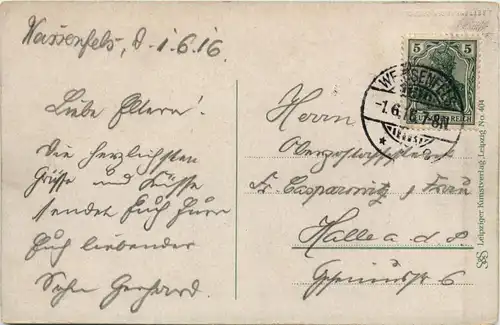 Weissenfels, d. 1.6.16.
Liebe Eltern!
Die herzlichsten
Grüsse und Küsse
sendet Euch Eurer
Euch liebender
Sohn Gerhard.
Herrn
Fr. Casparowitz u Frau
Halle a. d. S.
6
5 5
DEUTSCHES REICH
WEISSENFELS
-1.6.16.7-8N.
* e
585 Leipziger Kunstverlag Leipzig No. 404